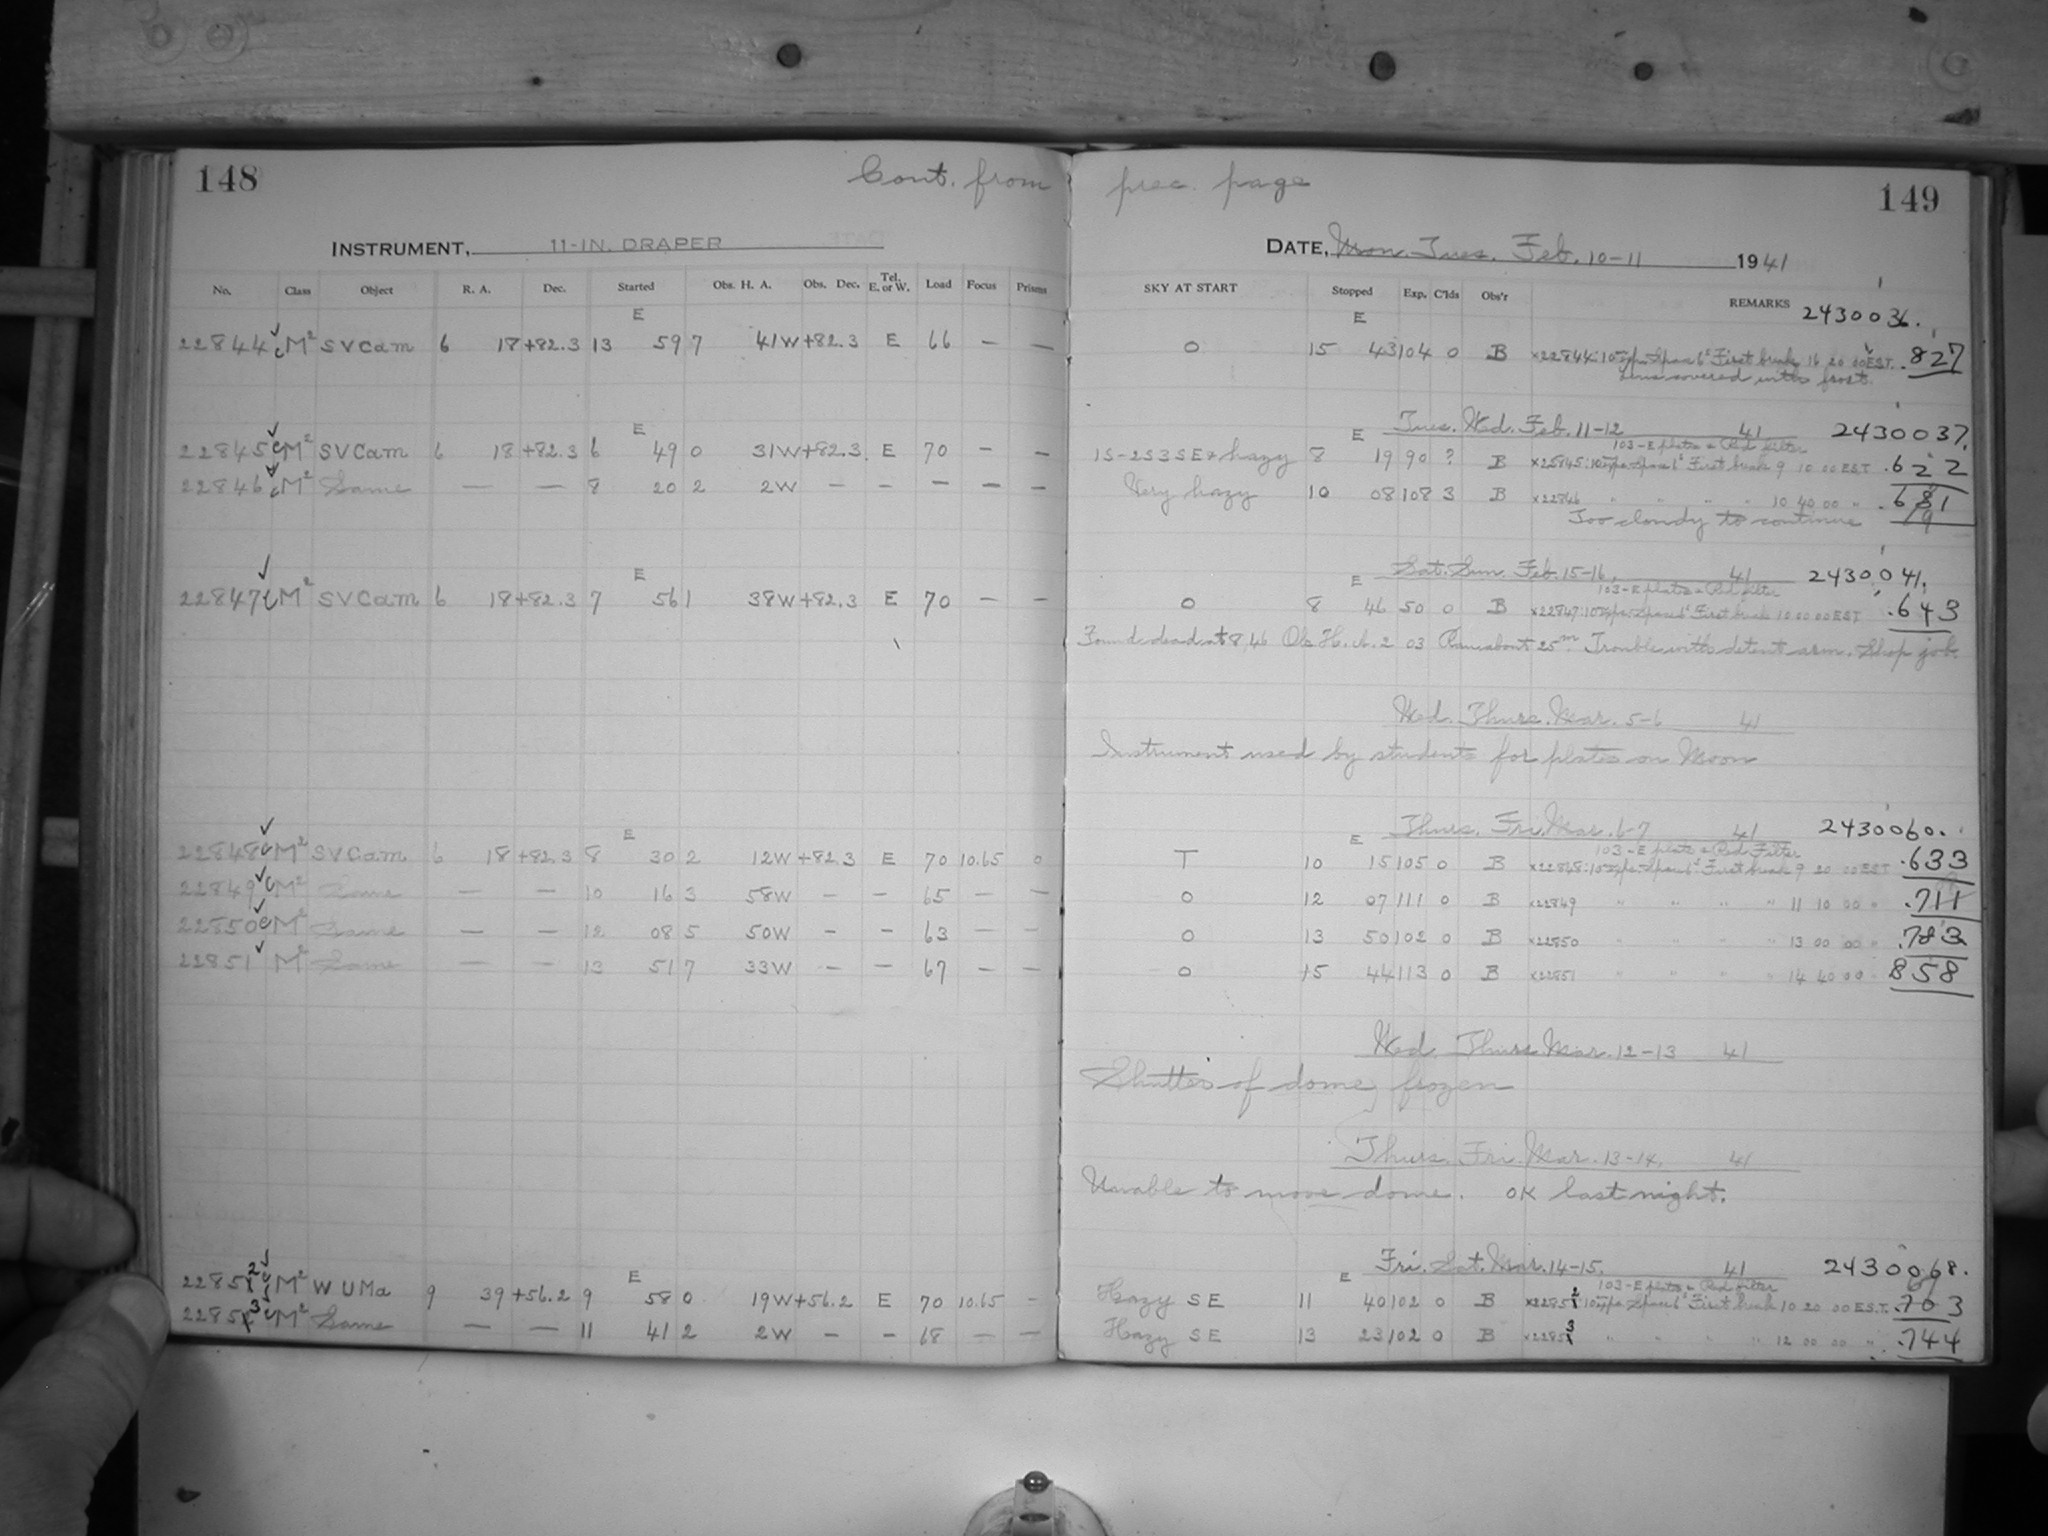 148 Cont. from prec. page 149
INSTRUMENT, 11-IN. DRAPER DATE, Mon. Tues. Feb. 10-11 1941
No. Class Object R. A. Dec. Started Obs. H. A. Obs. Dec. Tel. E. or W. Load Focus Prisms SKY AT START Stopped Exp. C'lds Obs'r REMARKS 2430036.
E E
22844 M² SVCam 6 18 +82.3 13 59 7 41W +82.3 E 66 — — O 15 43 104 0 B x22844: First break 16 20 00 EST. .827
Lens covered with frost.
E E Tues. Wed. Feb. 11-12 41 2430037.
103-E plate & Red filter
22845 M² SVCam 6 18 +82.3 6 49 0 31W +82.3 E 70 — — 8 19 90 ? B First break 9 10 00 EST .622
22846 M² Same — — 8 20 2 2W — — — — — Very hazy 10 08 108 3 B x22846 " " " " 10 40 00 " .681
Too cloudy to continue 9
E E Sat. Sun. Feb. 15-16 41 2430041.
103-E plate & Red filter
22847 M² SVCam 6 18 +82.3 7 56 1 38W +82.3 E 70 — — O 8 46 50 0 B x22847: First break 10 00 00 EST .643
Found dead at 8 46 Obs H. A. 2 03 Ran about 25m. Trouble with detent arm. Shop job.
Wed. Thurs. Mar. 5-6 41
Instrument used by students for plates on Moon
E E Thurs. Fri. Mar. 6-7 41 2430060.
103-E plate & Red Filter
22848 M² SVCam 6 18 +82.3 8 30 2 12W +82.3 E 70 10.65 0 T 10 15 105 0 B x22848: First break 9 20 00 EST .633
22849 M² Same — — 10 16 3 58W — — 65 — — O 12 07 111 0 B x22849 " " " " 11 10 00 " .711
22850 M² Same — — 12 08 5 50W — — 63 — — O 13 50 102 0 B x22850 " " " " 13 00 00 " .783
22851 M² Same — — 13 51 7 33W — — 67 — — O 15 44 113 0 B x22851 " " " " 14 40 00 858
Wed. Thurs. Mar. 12-13 41
Shutter of dome frozen
Thurs. Fri. Mar. 13-14. 41
Unable to move dome. OK last night.
E E Fri. Sat. Mar. 14-15. 41 2430068.
103-E plate & Red filter
22852 M² W UMa 9 39 +56.2 9 58 0 19W +56.2 E 70 10.65 — Hazy SE 11 40 102 0 B x22852: First break 10 20 00 EST. .703
22853 M² Same — — 11 41 2 2W — — 68 — — Hazy SE 13 23 102 0 B x22853 " " " " 12 00 00 " .744